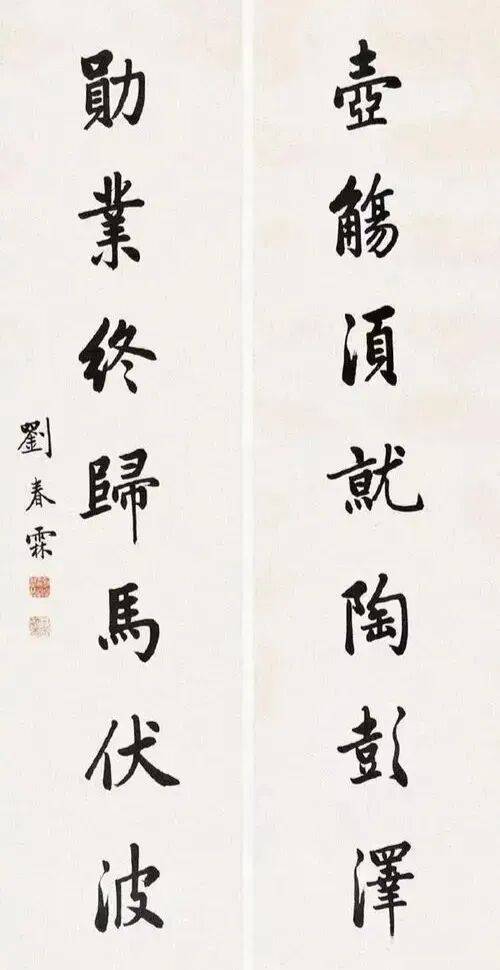 壺觴湏就陶彭澤
勛業終歸馬伏波
劉春霖